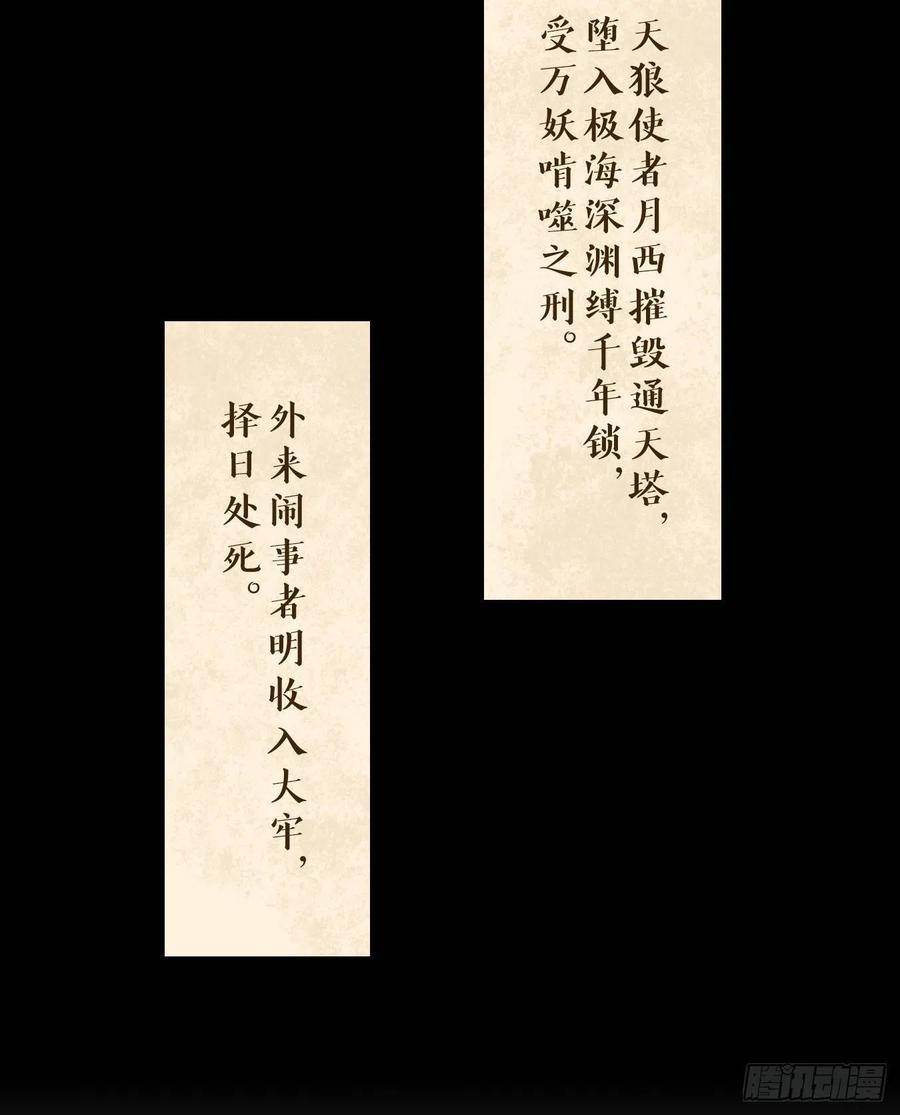 天狼使者月西摧毁通天塔，
堕入极海深渊缚千年锁，
受万妖啃噬之刑。
外来闹事者明收入大牢，
择日处死。
腾讯动漫